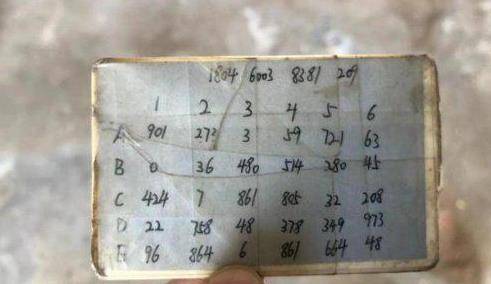 1804 6003 8381 209
1 2 3 4 5 6
A 901 272 3 59 721 63
B 0 36 480 514 280 45
C 424 7 861 805 32 208
D 22 758 48 378 349 973
E 96 864 6 861 664 48